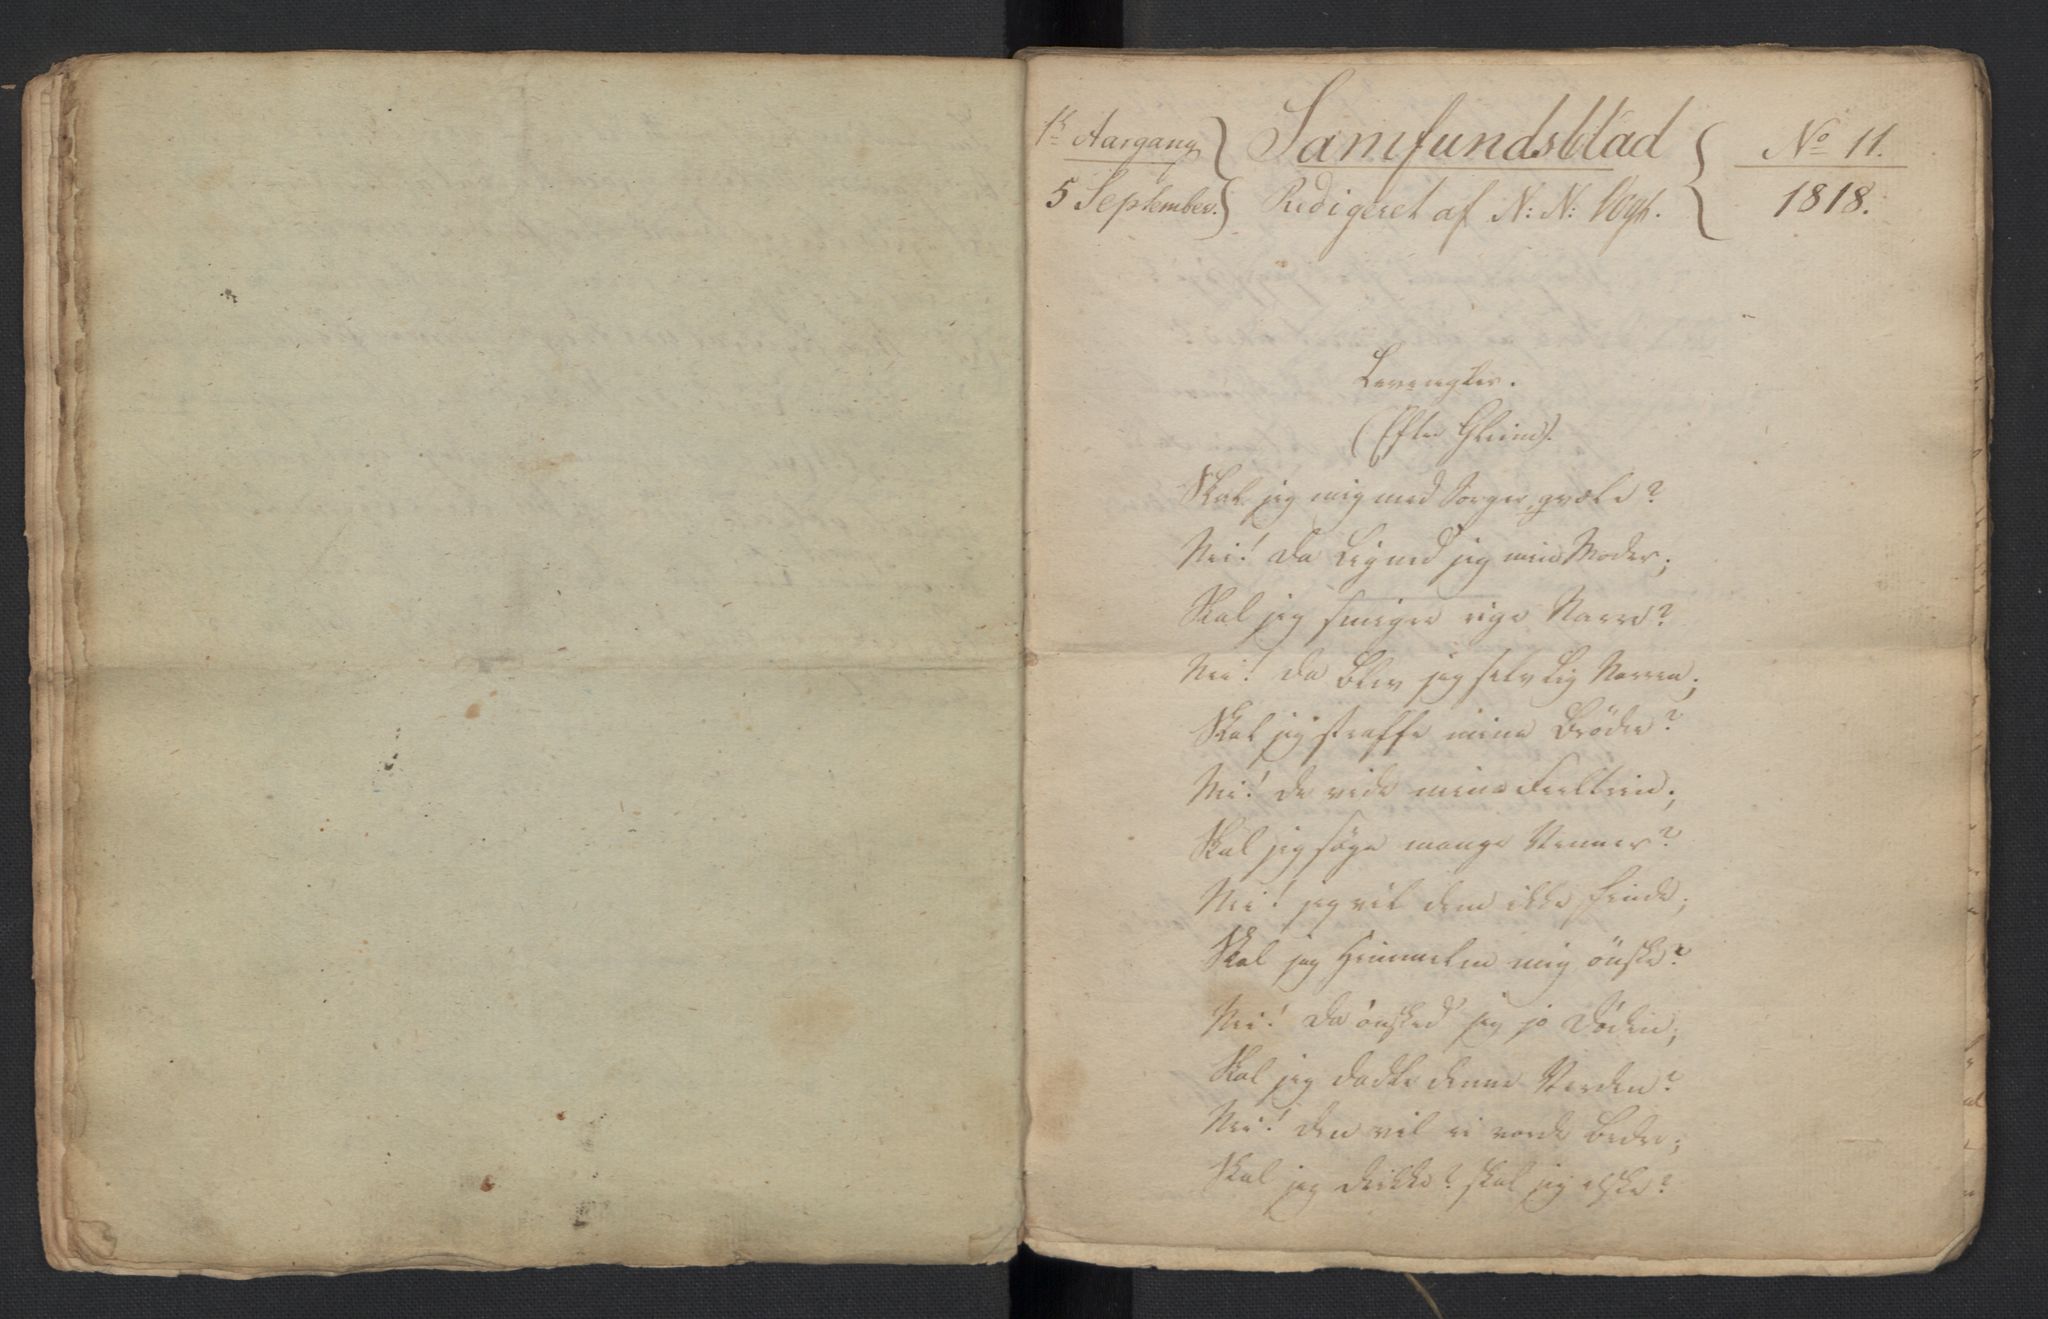 1ste Aargang
5 September.
Samfundsblad
Redigeret af N: N: Vogt.
No 11.
1818.
Leveregler.
(Efter Gleim).
Skal jeg mig med Sorger qvæle?
Nei! da ligned jeg min Moder;
Skal jeg smigre rige Narre?
Nei! da blev jeg selv lig Narren;
Skal jeg straffe mine Brødre?
Nei! de vide mine Feiltrin;
Skal jeg søge mange Venner?
Nei! jeg vil dem ikke finde;
Skal jeg Himmelen mig ønske?
Nei! da ønsked jeg jo Døden;
Skal jeg dadle denne Verden?
Nei! den vil ei vorde bedre;
Skal jeg drikke? skal jeg elske?